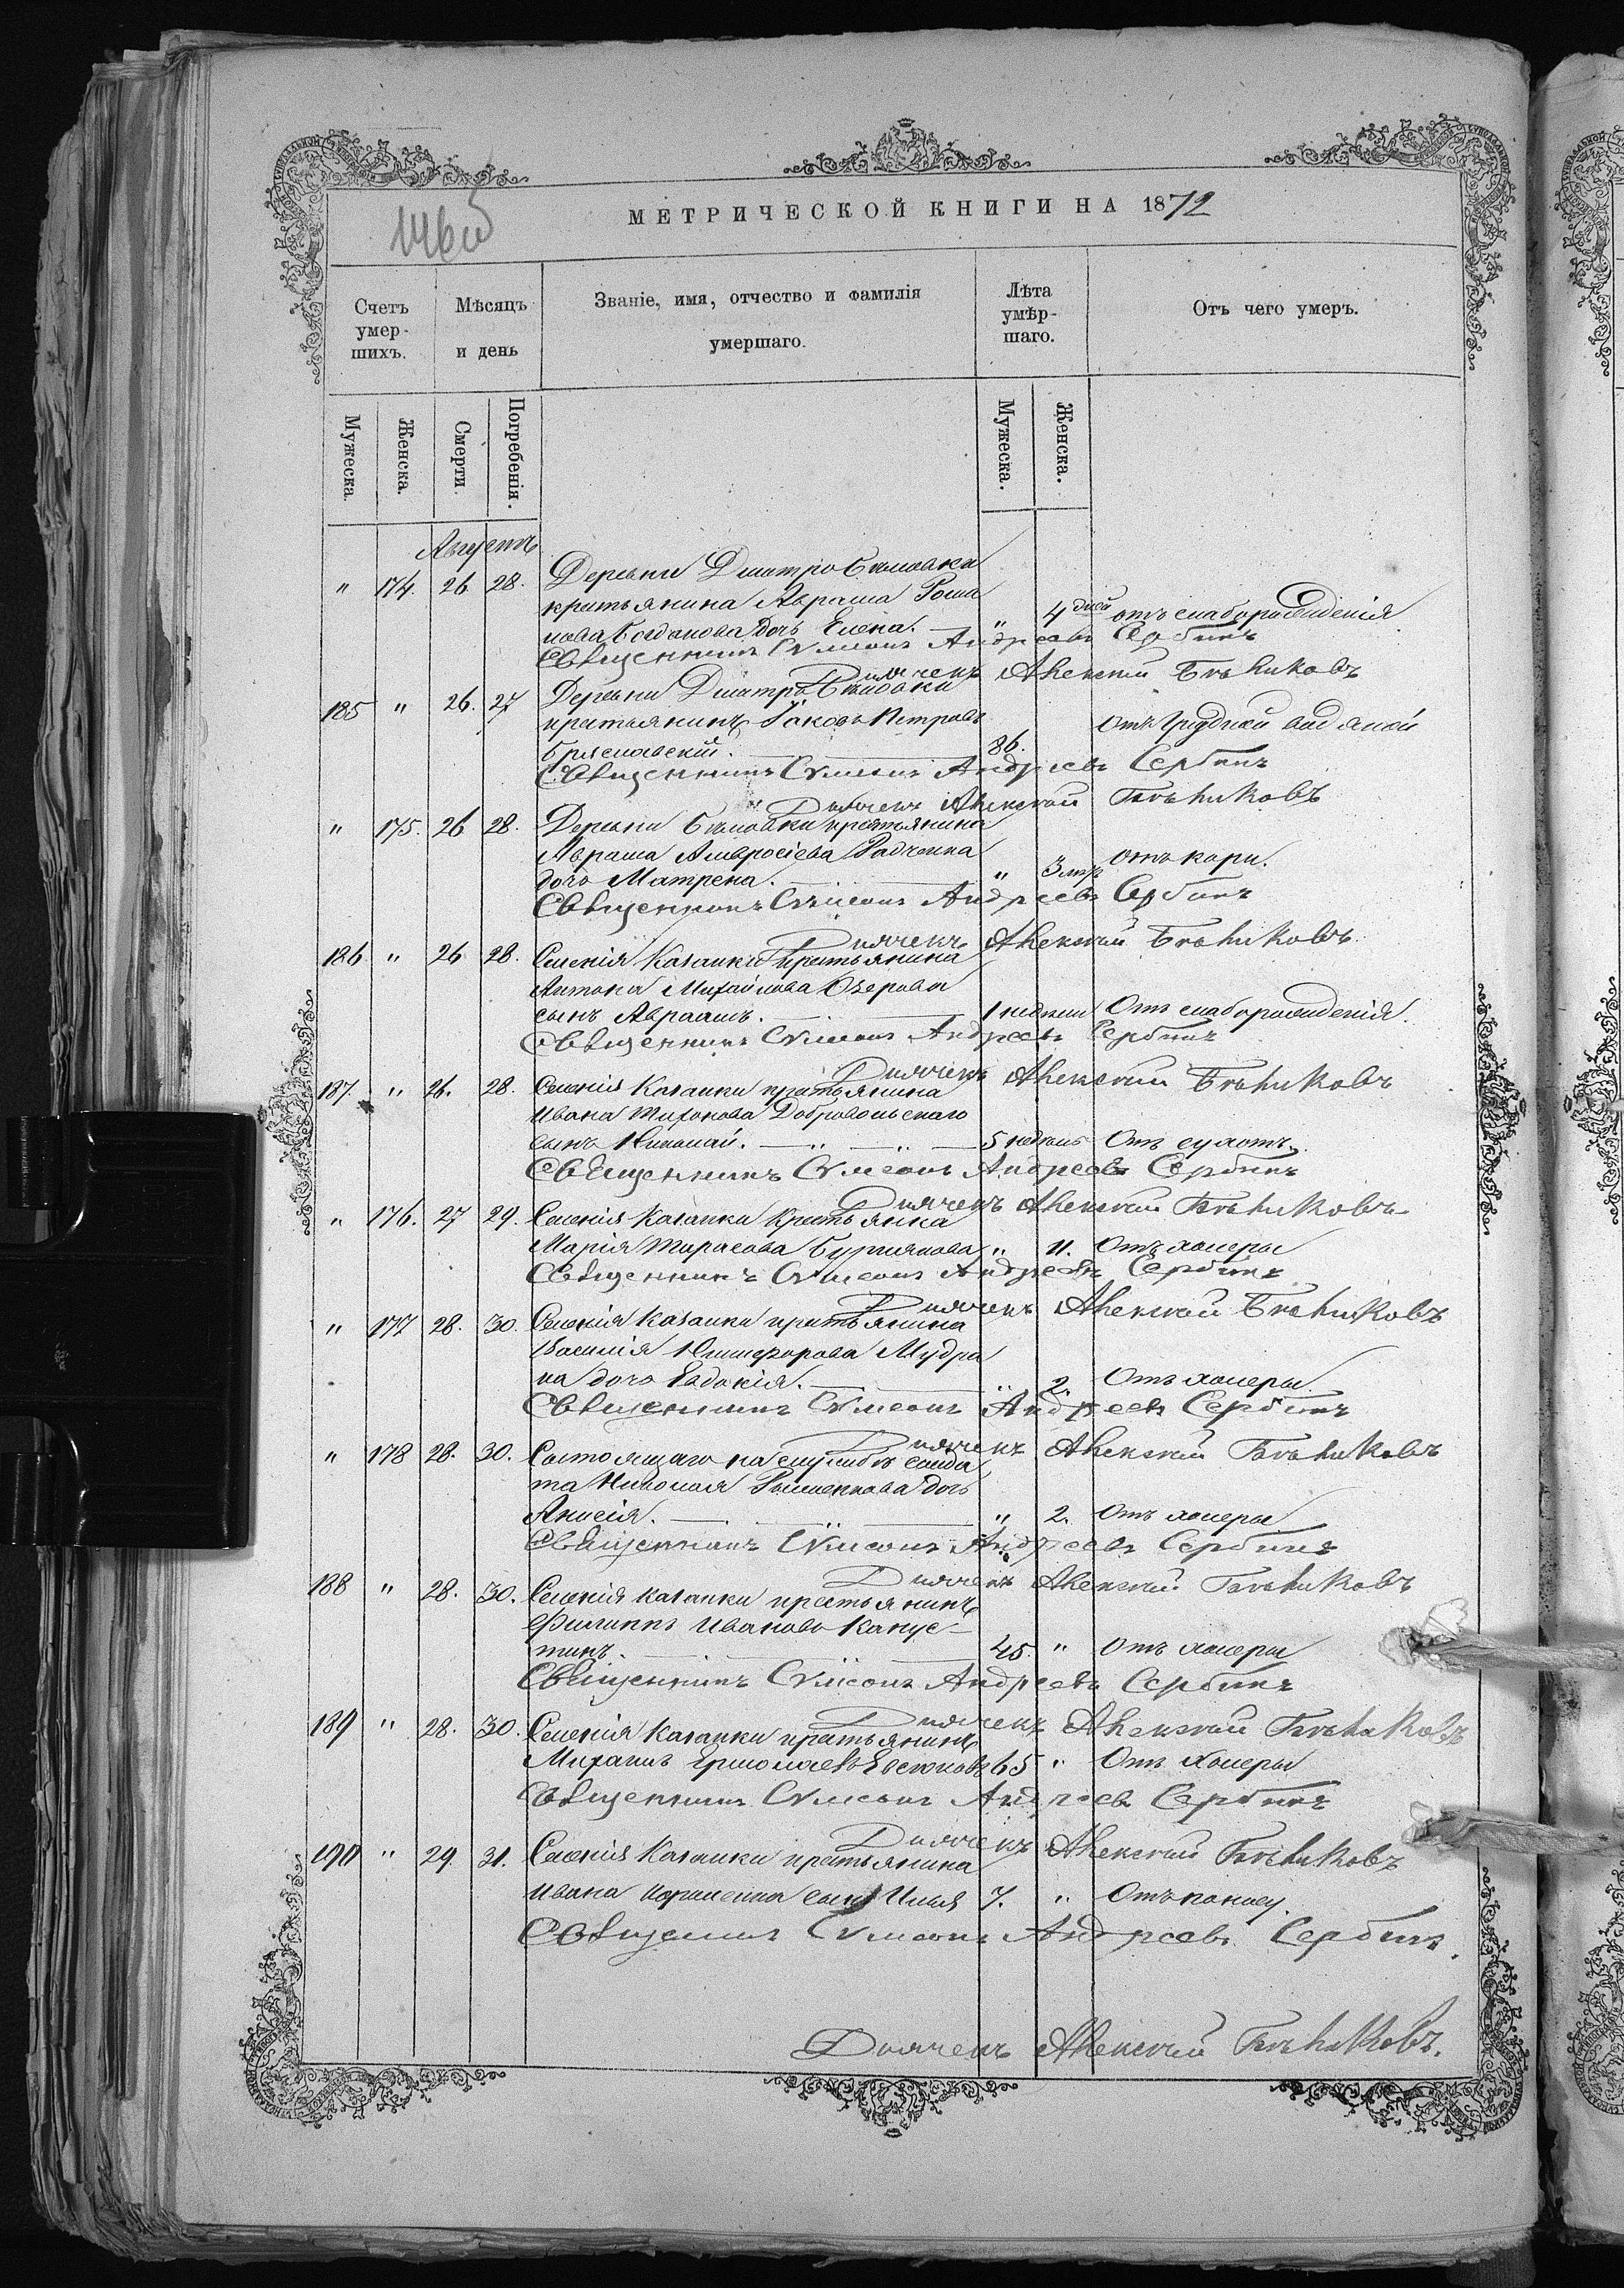 МЕТРИЧЕСКОЙ КНИГИ НА 1872
146 об
Счетъ умер- шихъ.
Мѣсяцъ и день
Званіе, имя, отчество и фамилія умершаго.
Лѣта умѣр- шаго.
Отъ чего умеръ.
Мужеска.
Женска.
Смерти.
Погребенія.
Мужеска.
Женска.
Августъ
" 174. 26 28. Деревни Дмитро Бѣловки
крестьянина Авраама
Богданова дочь Елена. " 4 дней отъ слаборожденія
Священникъ Сумеонъ Андреевъ Сербинъ
Дьячекъ Алексѣй Бѣликовъ
185 " 26. 27 Деревни Дмитро Бѣловки
крестьянинъ Іаковъ Петровъ отъ грудной водяной
86.
Священникъ Сумеонъ Андреевъ Сербинъ
Дьячекъ Алексѣй Бѣликовъ
" 175. 26 28. Деревни Бѣловки крестьянина
Авраама Амвросіева Радченка отъ кори.
дочь Матрена. " 3 мѣс
Священникъ Сумеонъ Андреевъ Сербинъ
Дьячекъ Алексѣй Бѣликовъ
186 " 26 28. Селенія Казанки крестьянина
Антона Михайлова Озерова
сынъ Авраамъ. 1 недѣли Отъ слаборожденія.
Священникъ Сумеонъ Андреевъ Сербинъ
Дьячекъ Алексѣй Бѣликовъ
187. " 26. 28. Селенія Казанки крестьянина
Ивана Тихонова Добровольскаго
сынъ Николай. 5 недѣль Отъ сухотъ.
Священникъ Сумеонъ Андреевъ Сербинъ
Дьячекъ Алексѣй Бѣликовъ
" 176. 27 29. Селенія Казанки Крестьянка
Марія Тарасова " 11. Отъ холеры
Священникъ Сумеонъ Андреевъ Сербинъ
Дьячекъ Алексѣй Бѣликовъ
" 177 28. 30. Селенія Казанки крестьянина
Василія Никифорова Мудра
ка дочь Евдокія. " 2. Отъ холеры.
Священникъ Сумеонъ Андреевъ Сербинъ
Дьячекъ Алексѣй Бѣликовъ
" 178 28. 30. Состоящаго на службѣ солда
та Николая дочь
Анисія. " 2. Отъ холеры
Священникъ Сумеонъ Андреевъ Сербинъ
Дьячекъ Алексѣй Бѣликовъ
188 " 28. 30. Селенія Казанки крестьянинъ
Филиппъ Ивановъ Капус-
тинъ. 45. " Отъ холеры
Священникъ Сумеонъ Андреевъ Сербинъ
Дьячекъ Алексѣй Бѣликовъ
189 " 28. 30. Селенія Казанки крестьянинъ
Михаилъ Ермолаевъ Евсюковъ 65 " Отъ холеры
Священникъ Сумеонъ Андреевъ Сербинъ
Дьячекъ Алексѣй Бѣликовъ
190 " 29. 31. Селенія Казанки крестьянина
Ивана сынъ Илья 7. " Отъ поносу.
Священникъ Сумеонъ Андреевъ Сербинъ.
Дьячекъ Алексѣй Бѣликовъ.